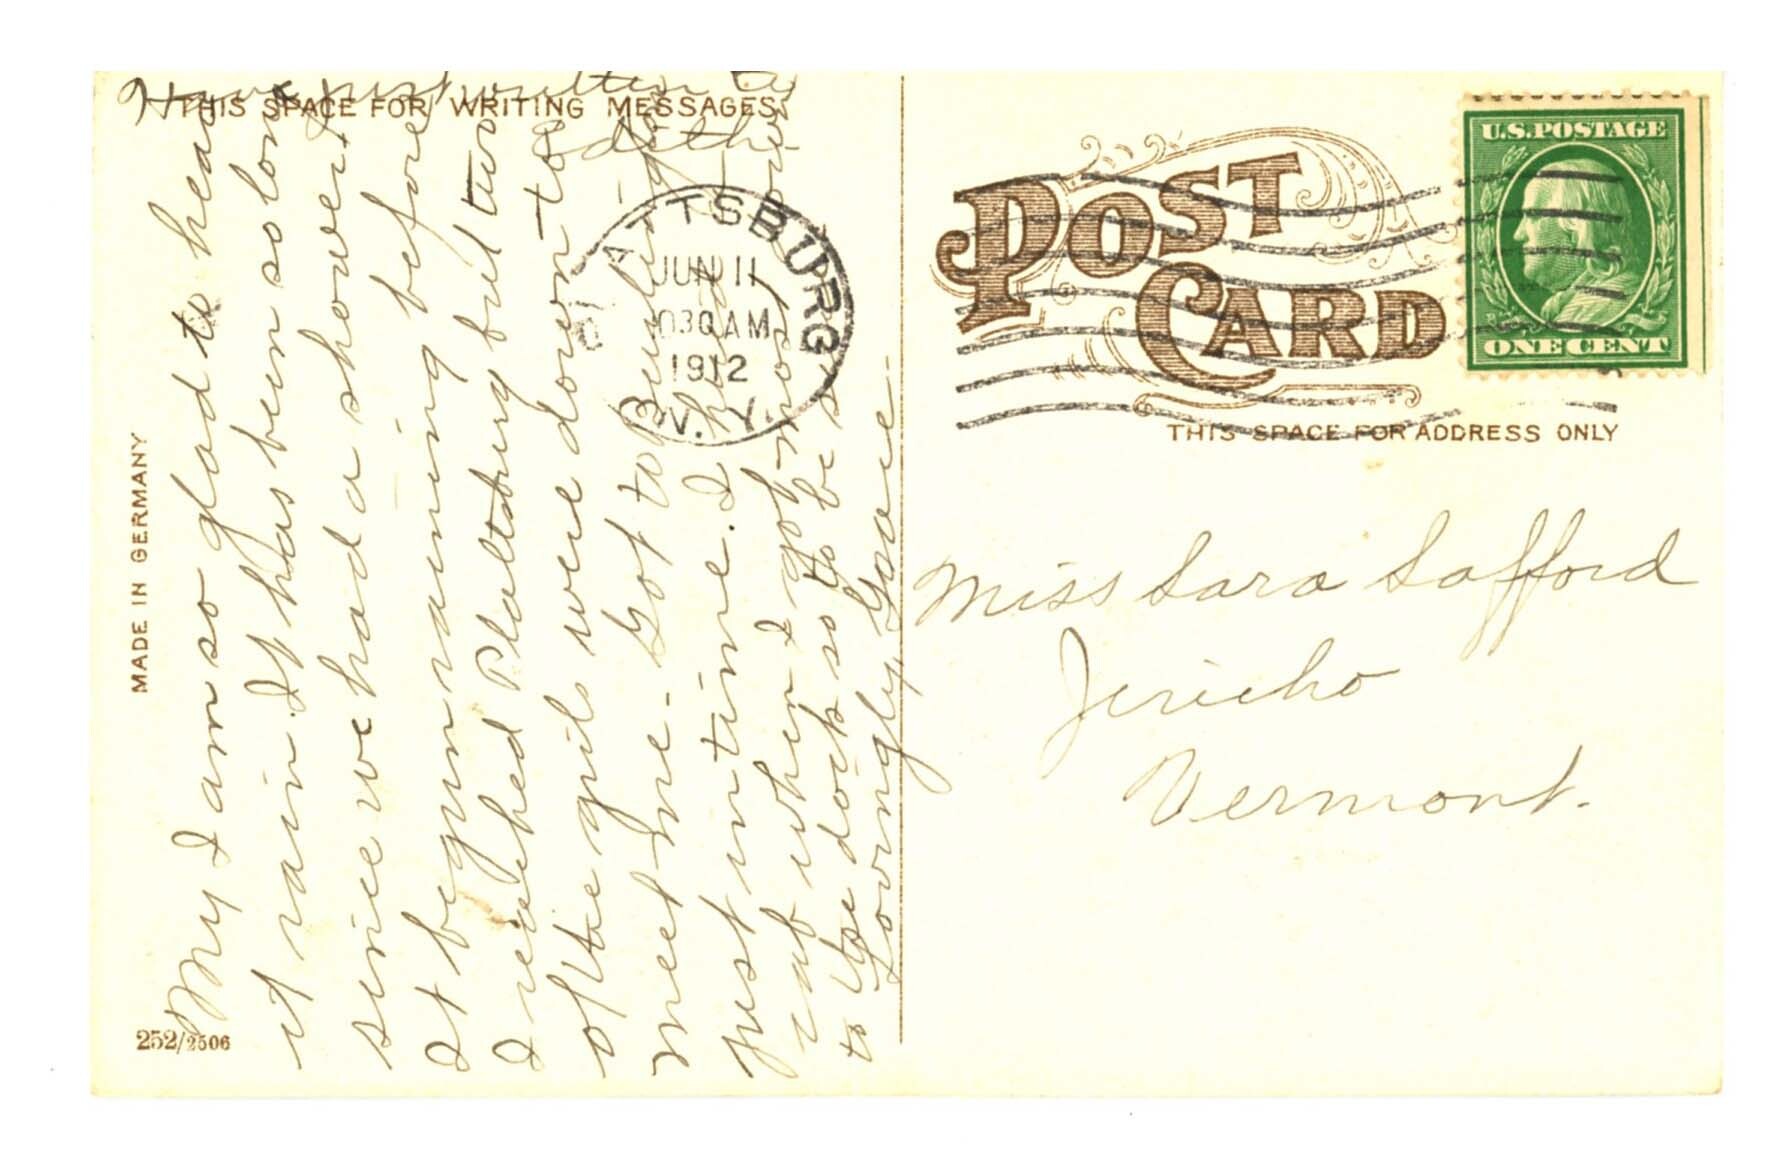 Have just written to
Edith.
THIS SPACE FOR WRITING MESSAGES
My I am so glad to hear
it rain. It has been so long
since we had a shower.
It begun raining before
I reached Plattsburg but two
of the girls were down to
meet me. Got to building
just in time. I had
cab when I got now
to the dock so to be s
Lovingly, Grace.
MADE IN GERMANY
252/2506
PLATTSBURG
JUN 11
1030 AM
1912
N.Y.
POST
CARD
U.S. POSTAGE
ONE CENT
THIS SPACE FOR ADDRESS ONLY
Miss Sara Safford
Jericho
Vermont.